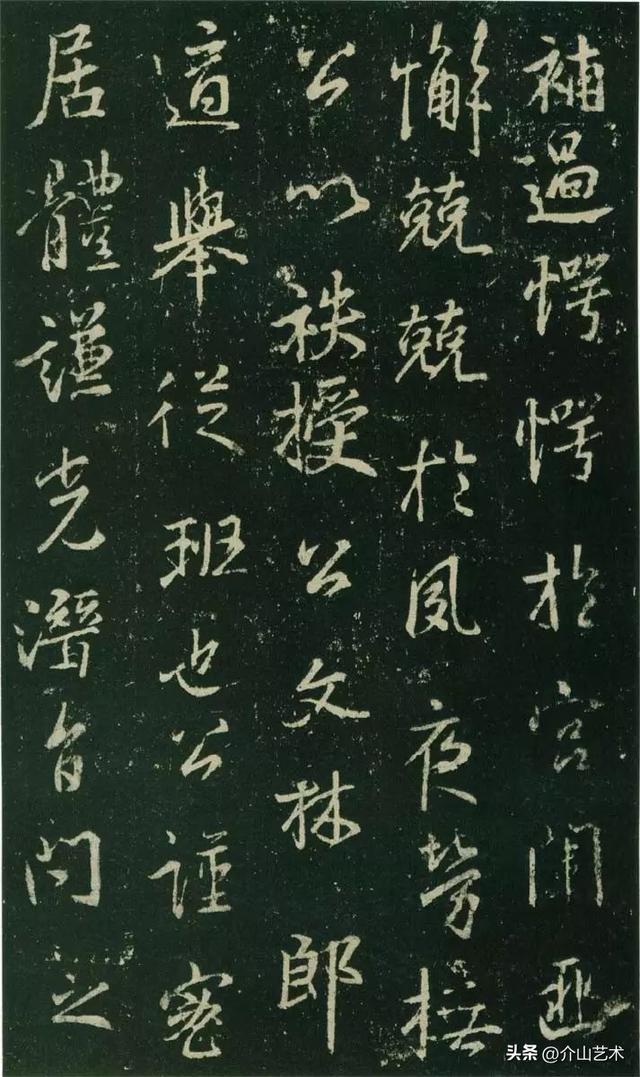 補過愕愕於宮闈匪
懈兢兢於夙夜勞
公以秩授公文林郎
適舉從班也公謹密
居體謙光潛旨問之
头条 @介山艺术